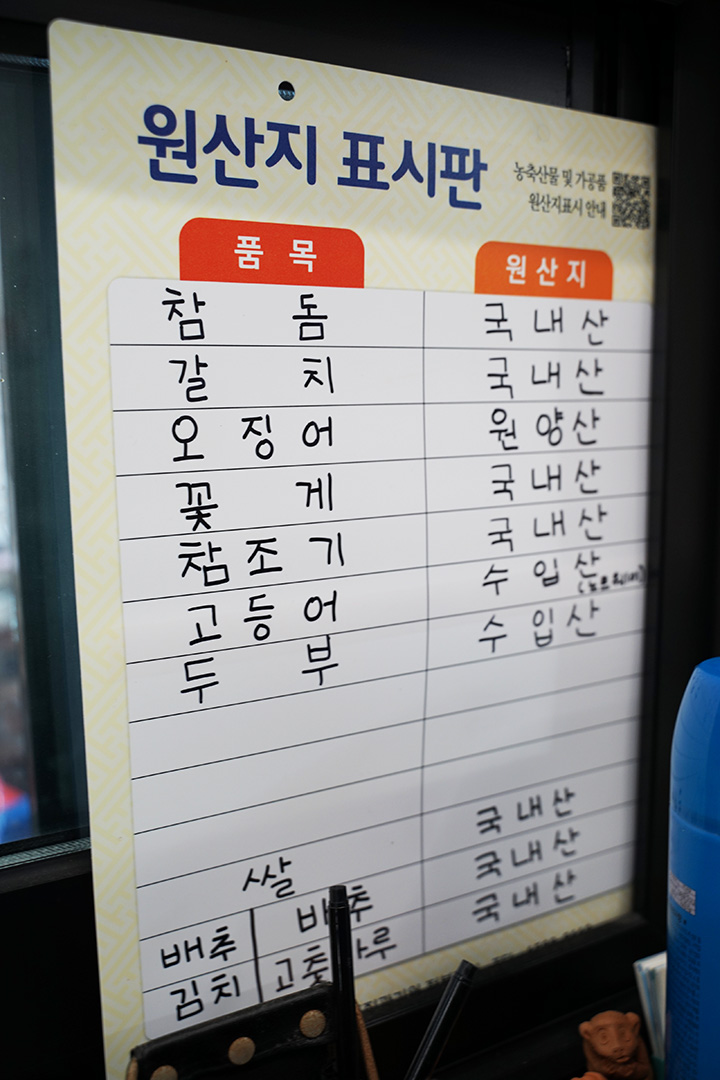 원산지 표시판
농축산물 및 가공품
원산지표시 안내
품목 원산지
참돔 국내산
갈치 국내산
오징어 원양산
꽃게 국내산
참조기 국내산
고등어 수입산(노르웨이)
두부 수입산
쌀 국내산
배추 배추 국내산
김치 고춧가루 국내산